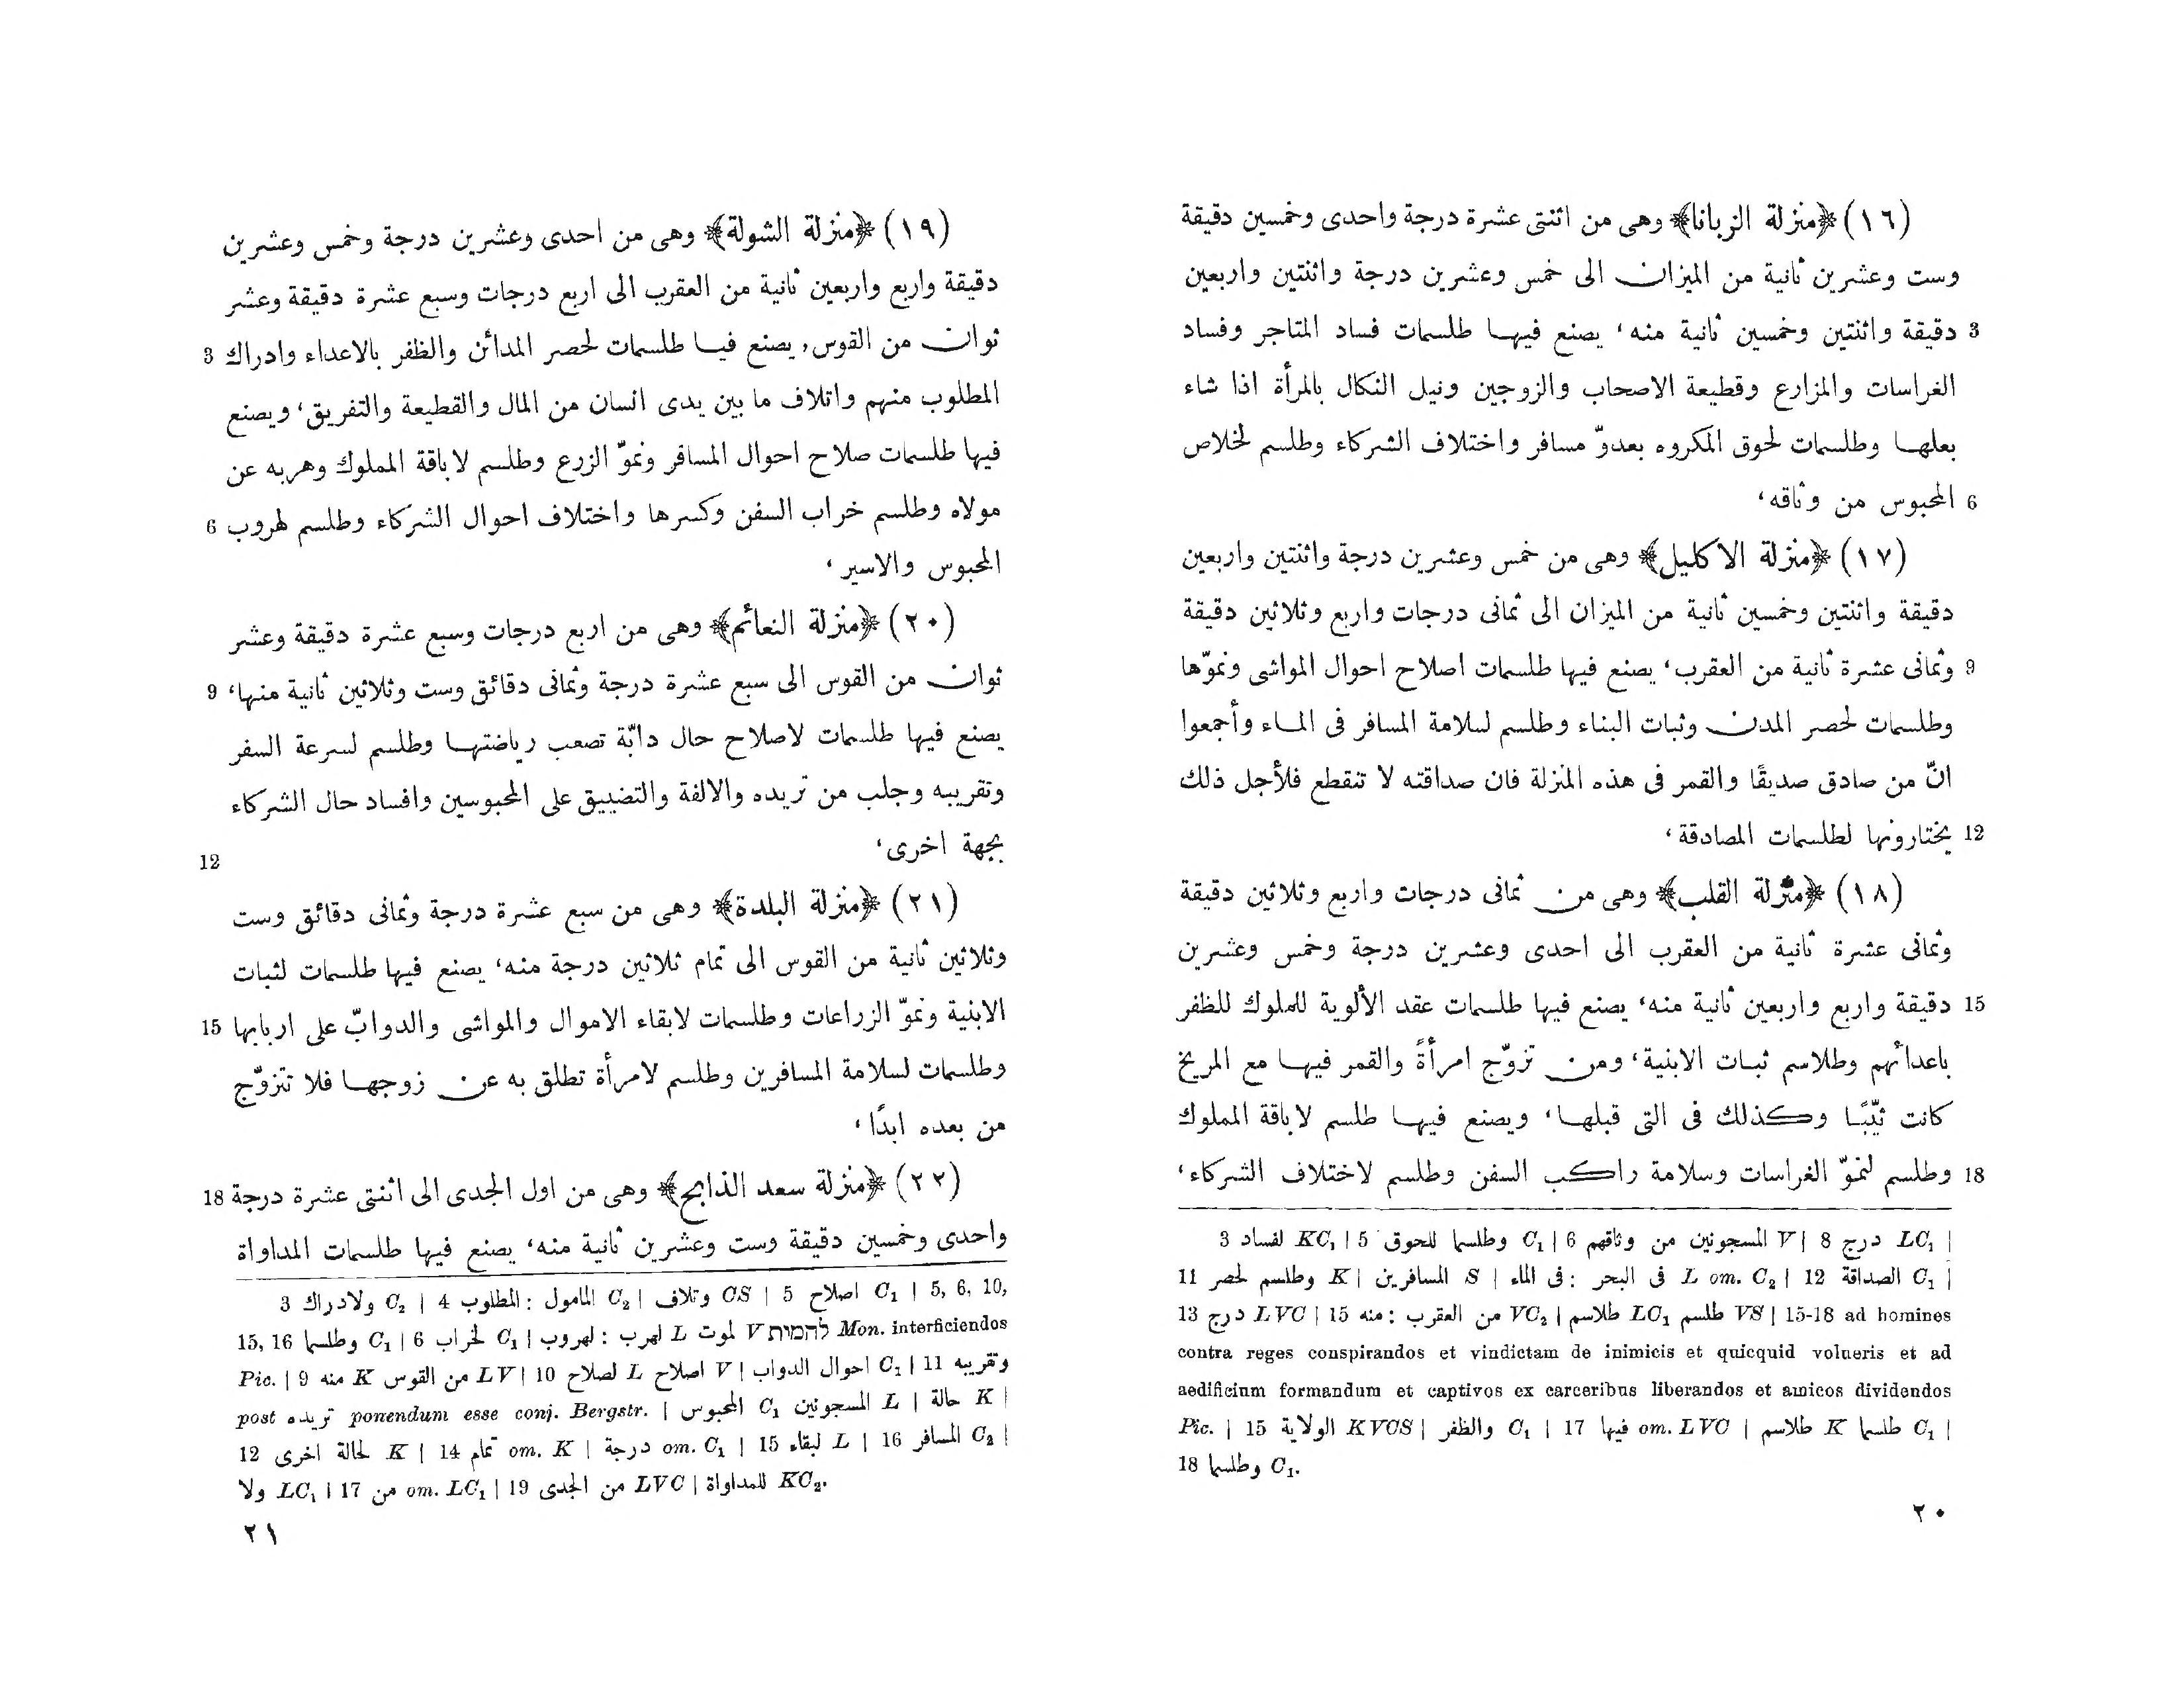 (١٦) ﴿منزلة الزبانا﴾ وهى من اثنتى عشرة درجة واحدى وخمسين دقيقة
وست وعشرين ثانية من الميزان الى خمس وعشرين درجة واثنتين واربعين
3 دقيقة واثنتين وخمسين ثانية منه، يصنع فيها طلسمات فساد المتاجر وفساد
الغراسات والمزارع وقطيعة الاصحاب والزوجين ونيل النكال بالمرأة اذا شاء
بعلها وطلسمات لحوق المكروه بعدوّ مسافر واختلاف الشركاء وطلسم لخلاص
6 المحبوس من وثاقه،
(١٧) ﴿منزلة الاكليل﴾ وهى من خمس وعشرين درجة واثنتين واربعين
دقيقة واثنتين وخمسين ثانية من الميزان الى ثمانى درجات واربع وثلاثين دقيقة
9 وثمانى عشرة ثانية من العقرب، يصنع فيها طلسمات اصلاح احوال المواشى ونموّها
وطلسمات لحصر المدن وثبات البناء وطلسم لسلامة المسافر فى الماء وأجمعوا
انّ من صادق صديقًا والقمر فى هذه المنزلة فان صداقته لا تنقطع فلأجل ذلك
12 يختارونها لطلسمات المصادقة،
(١٨) ﴿منزلة القلب﴾ وهى من ثمانى درجات واربع وثلاثين دقيقة
وثمانى عشرة ثانية من العقرب الى احدى وعشرين درجة وخمس وعشرين
15 دقيقة واربع واربعين ثانية منه، يصنع فيها طلسمات عقد الألوية للملوك للظفر
باعدائهم وطلاسم ثبات الابنية، ومن تزوّج امرأةً والقمر فيها مع المريخ
كانت ثيّبًا وكذلك فى التى قبلها، ويصنع فيها طلسم لاباقة المملوك
18 وطلسم لنموّ الغراسات وسلامة راكب السفن وطلسم لاختلاف الشركاء،
3 لفساد KC₁ | 5 وطلسما للحوق C₁ | 6 المسجونين من وثاقهم V | 8 درج LC₁ |
11 وطلسم لحصر K | المسافرين S | فى الماء: فى البحر L om. C₂ | 12 الصداقة C₁ |
13 درج LVC | 15 منه: من العقرب VC₂ | طلاسم LC₁ طلسم VS | 15-18 ad homines
contra reges conspirandos et vindictam de inimicis et quicquid volueris et ad
aedificium formandum et captivos ex carceribus liberandos et amicos dividendos
Pic. | 15 الولاية KVCS | والظفر C₁ | 17 فيها om. LVC | طلاسم K طلسما C₁ |
18 وطلسما C₁.
٢٠
(١٩) ﴿منزلة الشولة﴾ وهى من احدى وعشرين درجة وخمس وعشرين
دقيقة واربع واربعين ثانية من العقرب الى اربع درجات وسبع عشرة دقيقة وعشر
ثوان من القوس, يصنع فيا طلسمات لحصر المدائن والظفر بالاعداء وادراك 3
المطلوب منهم واتلاف ما بين يدى انسان من المال والقطيعة والتفريق، ويصنع
فيها طلسمات صلاح احوال المسافر ونموّ الزرع وطلسم لاباقة المملوك وهربه عن
مولاه وطلسم خراب السفن وكسرها واختلاف احوال الشركاء وطلسم لهروب 6
المحبوس والاسير،
(٢٠) ﴿منزلة النعائم﴾ وهى من اربع درجات وسبع عشرة دقيقة وعشر
ثوان من القوس الى سبع عشرة درجة وثمانى دقائق وست وثلاثين ثانية منها، 9
يصنع فيها طلسمات لاصلاح حال دابّة تصعب رياضتها وطلسم لسرعة السفر
وتقريبه وجلب من تريده والالفة والتضييق على المحبوسين وافساد حال الشركاء
بجهة اخرى، 12
(٢١) ﴿منزلة البلدة﴾ وهى من سبع عشرة درجة وثمانى دقائق وست
وثلاثين ثانية من القوس الى تمام ثلاثين درجة منه، يصنع فيها طلسمات لثبات
الابنية ونموّ الزراعات وطلسمات لابقاء الاموال والمواشى والدوابّ على اربابها 15
وطلسمات لسلامة المسافرين وطلسم لامرأة تطلق به عن زوجها فلا تتزوّج
من بعده ابدًا،
(٢٢) ﴿منزلة سعد الذابح﴾ وهى من اول الجدى الى اثنتى عشرة درجة 18
واحدى وخمسين دقيقة وست وعشرين ثانية منه، يصنع فيها طلسمات المداواة
3 ولادراك C₂ | 4 المطلوب: المامول C₂ | وتلاف CS | 5 اصلاح C₁ | 5, 6, 10,
15, 16 وطلسما C₁ | 6 لخراب C₁ | لهروب: لهرب L لموت V להמית Mon. interficiendos
Pic. | 9 منه K من القوس LV | 10 لصلاح L اصلاح V | احوال الدواب C₁ | 11 وتقريبه
post تريده ponendum esse conj. Bergstr. | المحبوس C₁ المسجونين L | حالة K |
12 لحالة اخرى K | 14 تمام om. K | درجة om. C₁ | 15 لبقاء L | 16 المسافر C₂ |
ولا LC₁ | 17 من om. LC₁ | 19 من الجدى LVC | للمداواة KC₂.
٢١